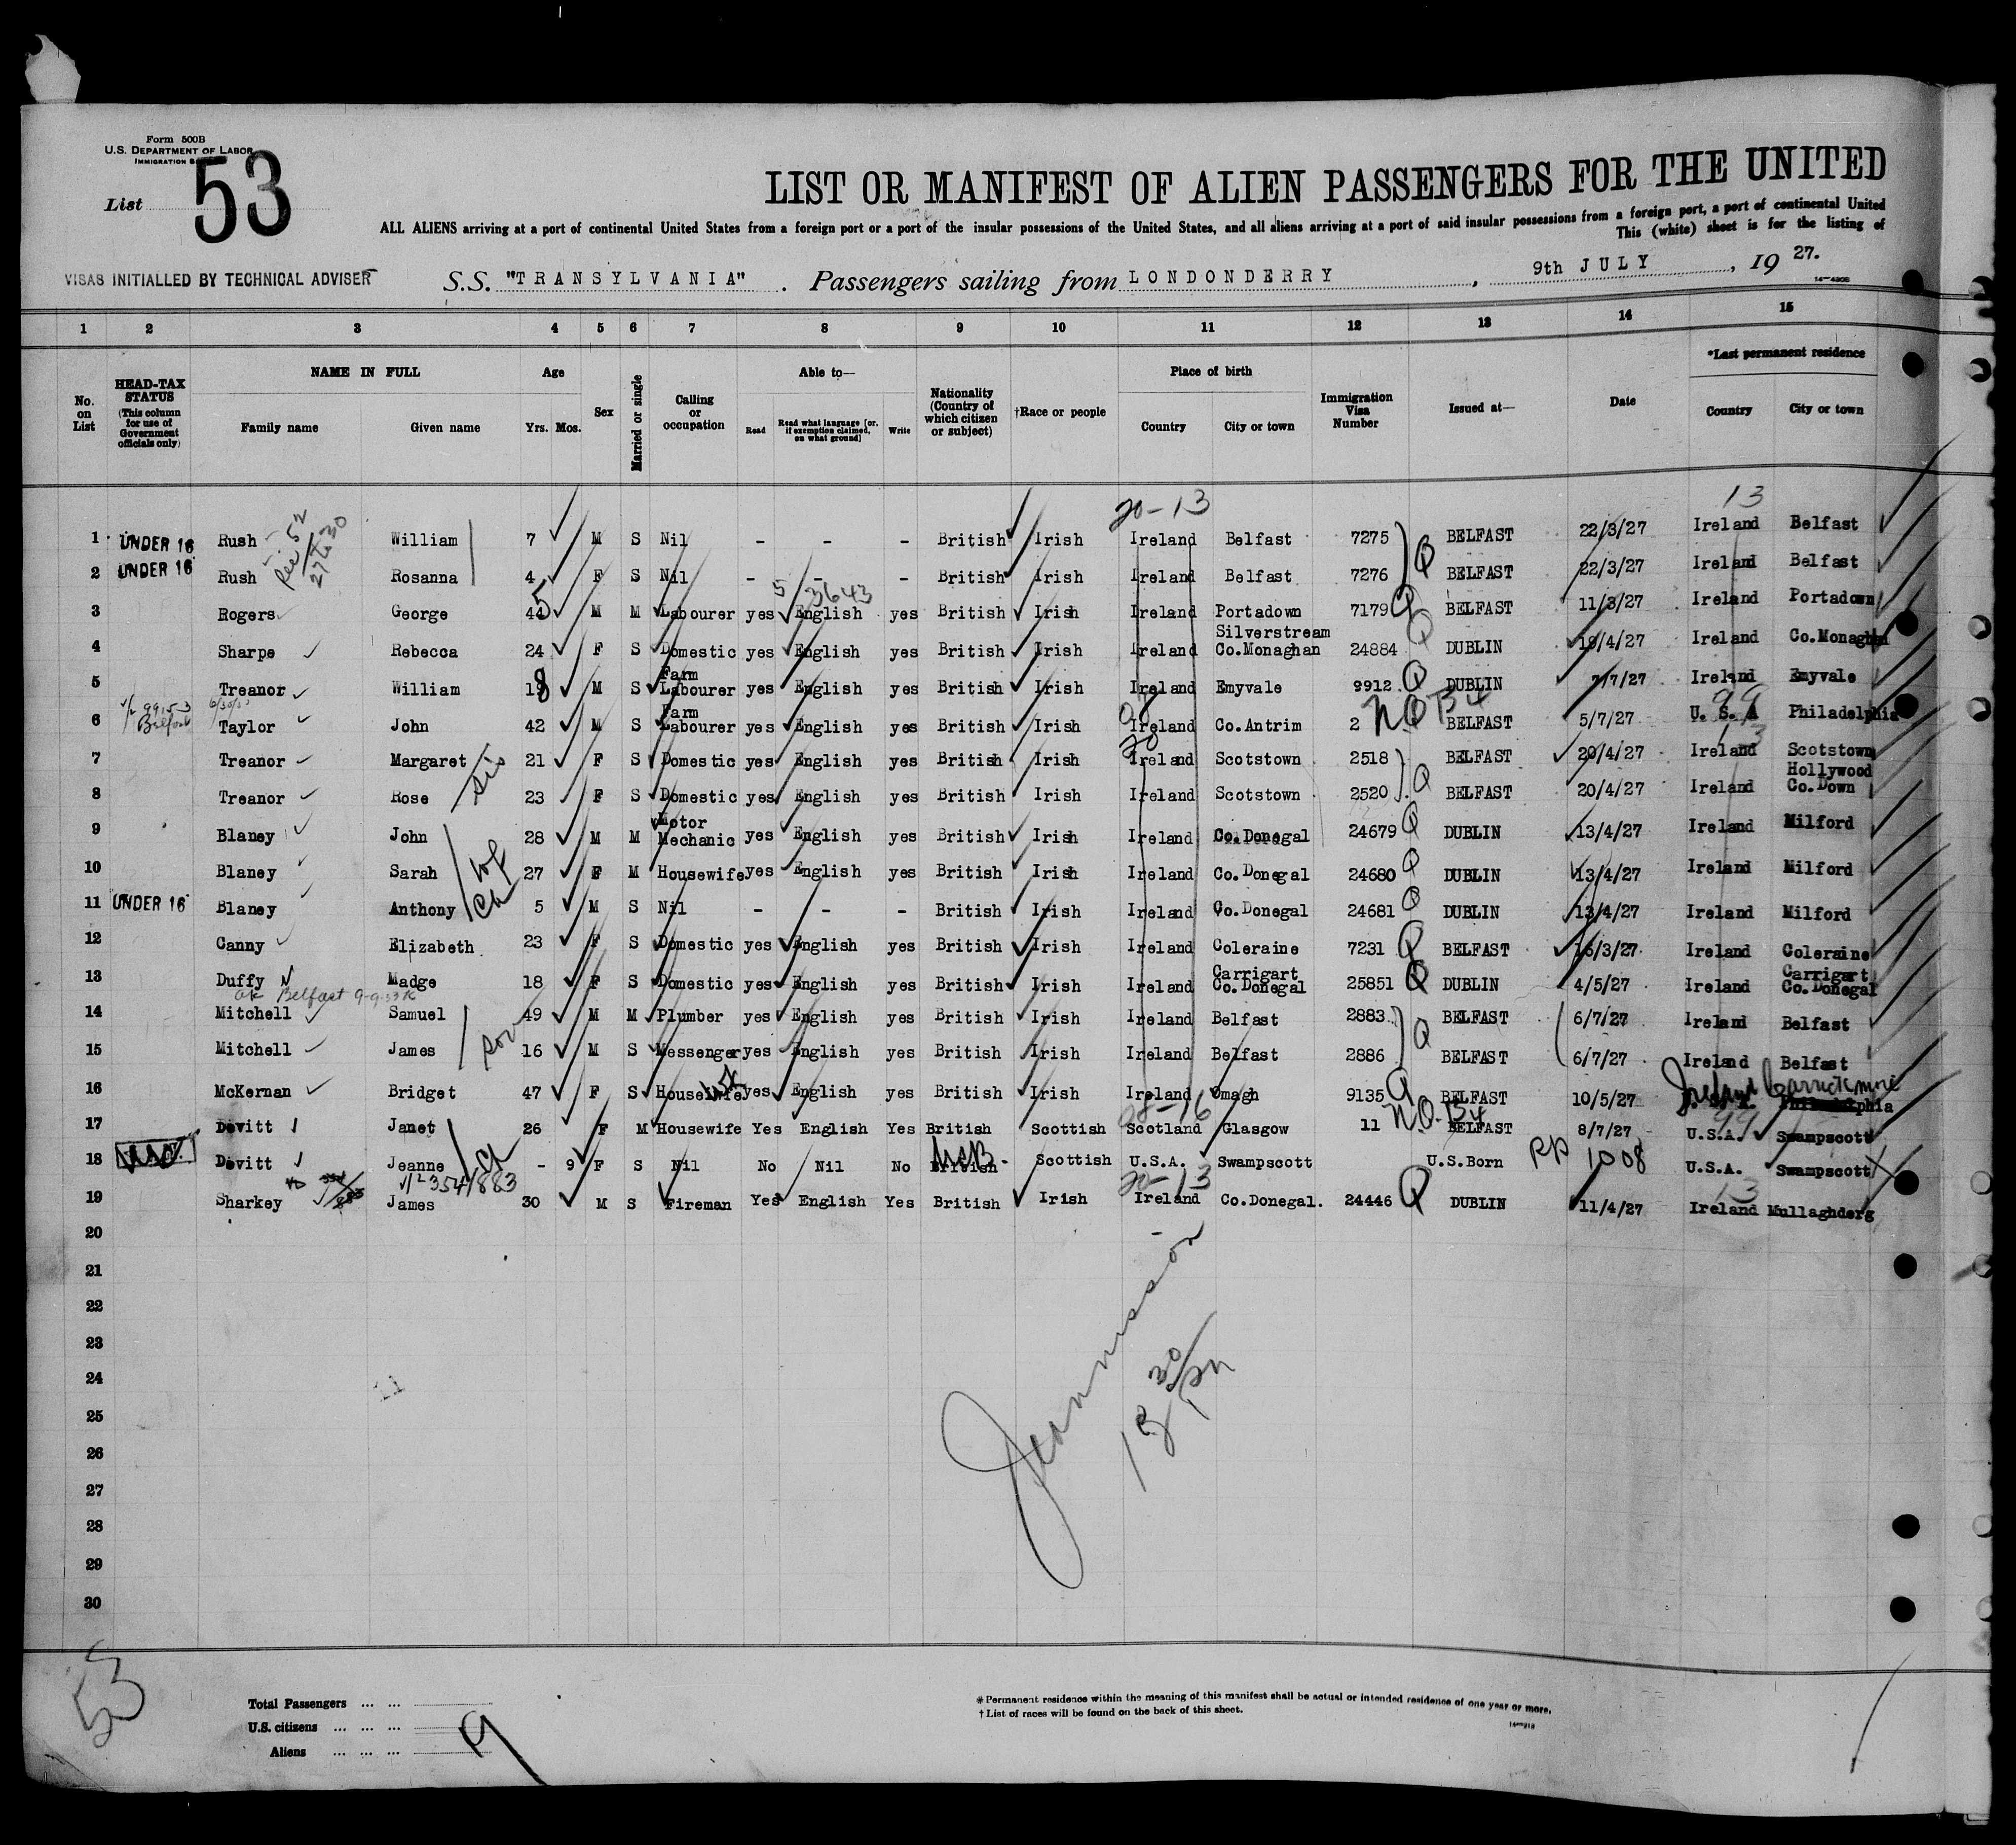 Form 500B
U.S. DEPARTMENT OF LABOR
IMMIGRATION
List 53
LIST OR MANIFEST OF ALIEN PASSENGERS FOR THE UNITED
ALL ALIENS arriving at a port of continental United States from a foreign port or a port of the insular possessions of the United States, and all aliens arriving at a port of said insular possessions from a foreign port, a port of continental United
This (white) sheet is for the listing of
VISAS INITIALLED BY TECHNICAL ADVISER
S.S. "TRANSYLVANIA". Passengers sailing from LONDONDERRY, 9th JULY, 19 27.
1 2 3 4 5 6 7 8 9 10 11 12 13 14 15
No. on List
HEAD-TAX STATUS (This column for use of Government officials only)
NAME IN FULL Family name Given name
Age Yrs. Mos.
Sex
Married or single
Calling or occupation
Able to— Read Read what language [or, if exemption claimed, on what ground] Write
Nationality (Country of which citizen or subject)
†Race or people
Place of birth Country City or town
Immigration Visa Number
Issued at—
Date
*Last permanent residence Country City or town
20-13 13
1 UNDER 16 Rush William 7 M S Nil - - - British Irish Ireland Belfast 7275 BELFAST 22/3/27 Ireland Belfast
2 UNDER 16 Rush Rosanna 4 F S Nil - - - British Irish Ireland Belfast 7276 Q BELFAST 22/3/27 Ireland Belfast
5 3643
3 Rogers George 45 M M Labourer yes English yes British Irish Ireland Portadown 7179 Q BELFAST 11/3/27 Ireland Portadown
4 Sharpe Rebecca 24 F S Domestic yes English yes British Irish Ireland Silverstream Co.Monaghan 24884 Q DUBLIN 19/4/27 Ireland Co.Monaghan
5 Treanor William 18 M S Farm Labourer yes English yes British Irish Ireland Emyvale 9912 Q DUBLIN 7/7/27 Ireland Emyvale
6 Belfast Taylor John 42 M S Farm Labourer yes English yes British Irish Ireland Co.Antrim 2 NQB4 BELFAST 5/7/27 U. S. A Philadelphia
7 Treanor Margaret 21 F S Domestic yes English yes British Irish Ireland Scotstown 2518 BELFAST 20/4/27 Ireland Scotstown
8 Treanor Rose sis 23 F S Domestic yes English yes British Irish Ireland Scotstown 2520 Q BELFAST 20/4/27 Ireland Hollywood Co.Down
9 Blaney John 28 M M Motor Mechanic yes English yes British Irish Ireland Co.Donegal 24679 Q DUBLIN 13/4/27 Ireland Milford
10 Blaney Sarah wf 27 F M Housewife yes English yes British Irish Ireland Co.Donegal 24680 Q DUBLIN 13/4/27 Ireland Milford
11 UNDER 16 Blaney Anthony ch 5 M S Nil - - - British Irish Ireland Co.Donegal 24681 Q DUBLIN 13/4/27 Ireland Milford
12 Canny Elizabeth 23 F S Domestic yes English yes British Irish Ireland Coleraine 7231 Q BELFAST 16/3/27 Ireland Coleraine
13 Duffy Madge 18 F S Domestic yes English yes British Irish Ireland Carrigart Co.Donegal 25851 Q DUBLIN 4/5/27 Ireland Carrigart Co.Donegal
Belfast
14 Mitchell Samuel 49 M M Plumber yes English yes British Irish Ireland Belfast 2883 BELFAST 6/7/27 Ireland Belfast
15 Mitchell James son 16 M S Messenger yes English yes British Irish Ireland Belfast 2886 Q BELFAST 6/7/27 Ireland Belfast
16 McKernan Bridget 47 F S Housewife yes English yes British Irish Ireland Omagh 9135 Q BELFAST 10/5/27 Ireland Carrickmore Philadelphia
28-16 99
17 Devitt Janet 26 F M Housewife Yes English Yes British Scottish Scotland Glasgow 11 NQ-B4 BELFAST 8/7/27 U.S.A. Swampscott
18 Devitt Jeanne ch - 9 F S Nil No Nil No British USB. Scottish U.S.A. Swampscott U.S.Born PP 1008 U.S.A. Swampscott
354/883 20-13 13
19 Sharkey James 30 M S Fireman Yes English Yes British Irish Ireland Co.Donegal. 24446 Q DUBLIN 11/4/27 Ireland Mullaghderg
20
21
22
23
24
25
26
27
28
29
30
53
Total Passengers ... ...
U.S. citizens ... ... ...
Aliens ... ... ...
*Permanent residence within the meaning of this manifest shall be actual or intended residence of one year or more.
†List of races will be found on the back of this sheet.